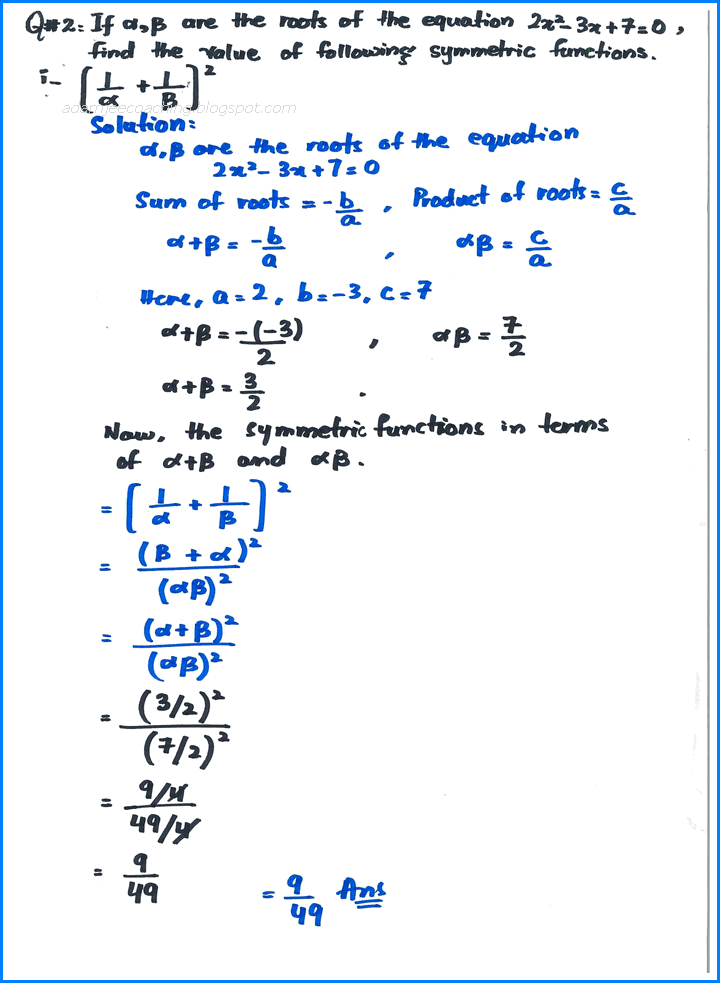 Q#2: If α,β are the roots of the equation 2x²-3x+7=0,
find the value of following symmetric functions.
i- [1/α + 1/β]²
adamjeecoaching.blogspot.com
Solution:
α,β are the roots of the equation
2x²-3x+7=0
Sum of roots = -b/a , Product of roots = c/a
α+β = -b/a , αβ = c/a
Here, a=2, b=-3, c=7
α+β = -(-3)/2 , αβ = 7/2
α+β = 3/2 .
Now, the symmetric functions in terms
of α+β and αβ.
= [1/α + 1/β]²
= (β + α)²/(αβ)²
= (α+β)²/(αβ)²
= (3/2)²/(7/2)²
= 9/4/49/4
= 9/49 = 9/49 Ans